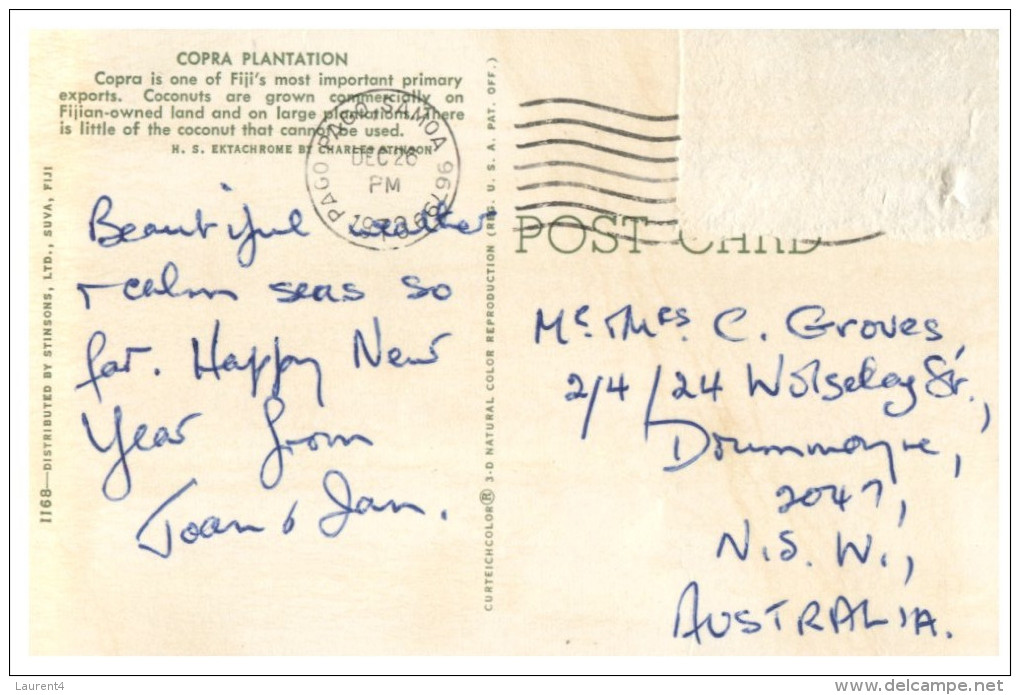 COPRA PLANTATION
Copra is one of Fiji's most important primary
exports. Coconuts are grown commercially on
Fijian-owned land and on large plantations. There
is little of the coconut that cannot be used.
H. S. EKTACHROME BY CHARLES STINSON
PAGO PAGO, SAMOA 96796
DEC 26
PM
Beautiful weather
+ calm seas so
far. Happy New
Year from
Joan & Jan.
1168—DISTRIBUTED BY STINSONS, LTD., SUVA, FIJI
CURTEICHCOLOR® 3-D NATURAL COLOR REPRODUCTION (REG. U. S. A. PAT. OFF.)
POST CARD
Mr. & Mrs. C. Groves,
2/4/24 Wolseley Str.,
Drummoyne,
2047,
N.S.W.,
AUSTRALIA.
Laurent4
www.delcampe.net